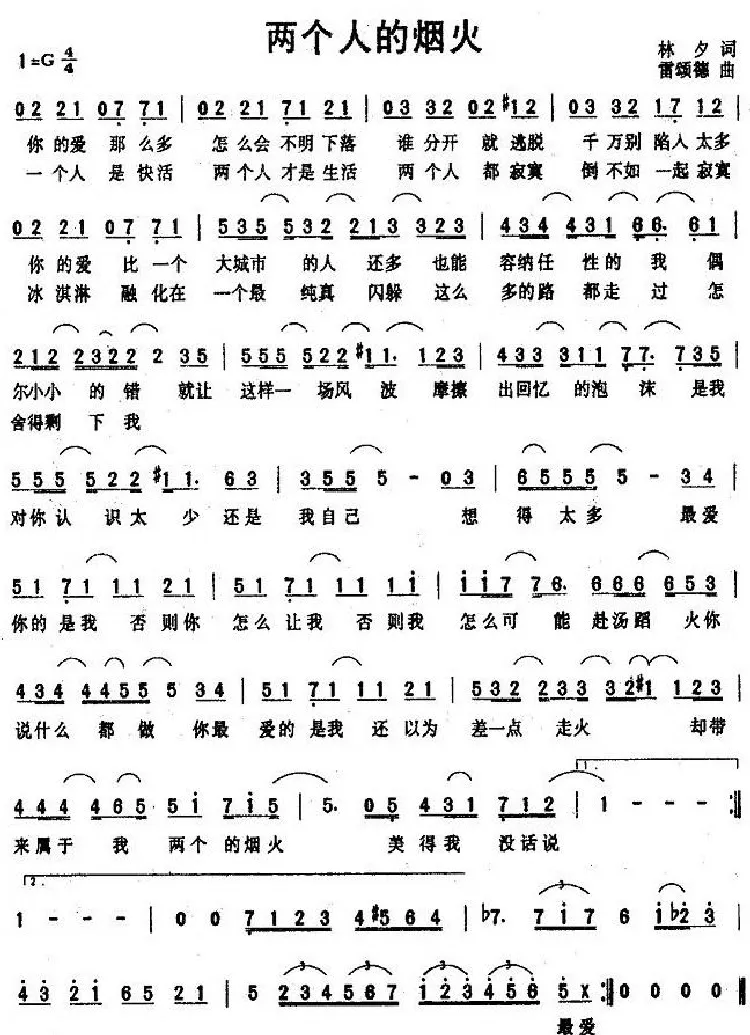 两个人的烟火
1=G 4/4
林夕 词
雷颂德 曲
02 21 07 71 | 02 21 71 21 | 03 32 02 #12 | 03 32 17 12 |
你的爱 那么多 怎么会 不明下落 谁分开 就逃脱 千万别 陷入太多
一个人 是快活 两个人 才是生活 两个人 都寂寞 倒不如 一起寂寞
02 21 07 71 | 535 532 213 323 | 434 431 66. 61 |
你的爱 比一个 大城市 的人 还多 也能 容纳任 性的 我 偶
冰淇淋 融化在 一个最 纯真 闪躲 这么 多的路 都走 过 怎
212 2322 2 35 | 555 522 #11. 123 | 433 311 77. 735 |
尔小小 的错 就让 这样一 场风波 摩擦 出回忆 的泡沫 是我
舍得剩 下我
555 522 #11. 63 | 3555 5 - 03 | 6555 5 - 34 |
对你认 识太少 还是 我自己 想 得太多 最爱
51 71 11 21 | 51 71 11 1i | ii7 76. 666 653 |
你的是我 否则你 怎么让我 否则我 怎么可 能 赴汤蹈 火你
434 4455 5 34 | 51 71 11 21 | 532 233 32#1 123 |
说什么 都做 你最 爱的是我 还以为 差一点 走火 却带
1.
444 465 5i 7i5 | 5. 05 431 712 | 1 - - - :||
来属于 我 两个 的烟火 美得我 没话说
2.
1 - - - | 0 0 7123 4#564 | b7. 7i7 6 ib23 |
43 2i 65 21 | 5 234567 i23456 5X :|| 0 0 0 0 |
最爱